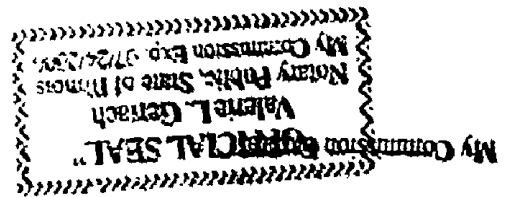 My Commission "OFFICIAL SEAL"
Valerie L. Gerlach
Notary Public, State of Illinois
My Commission Exp. 07/24/